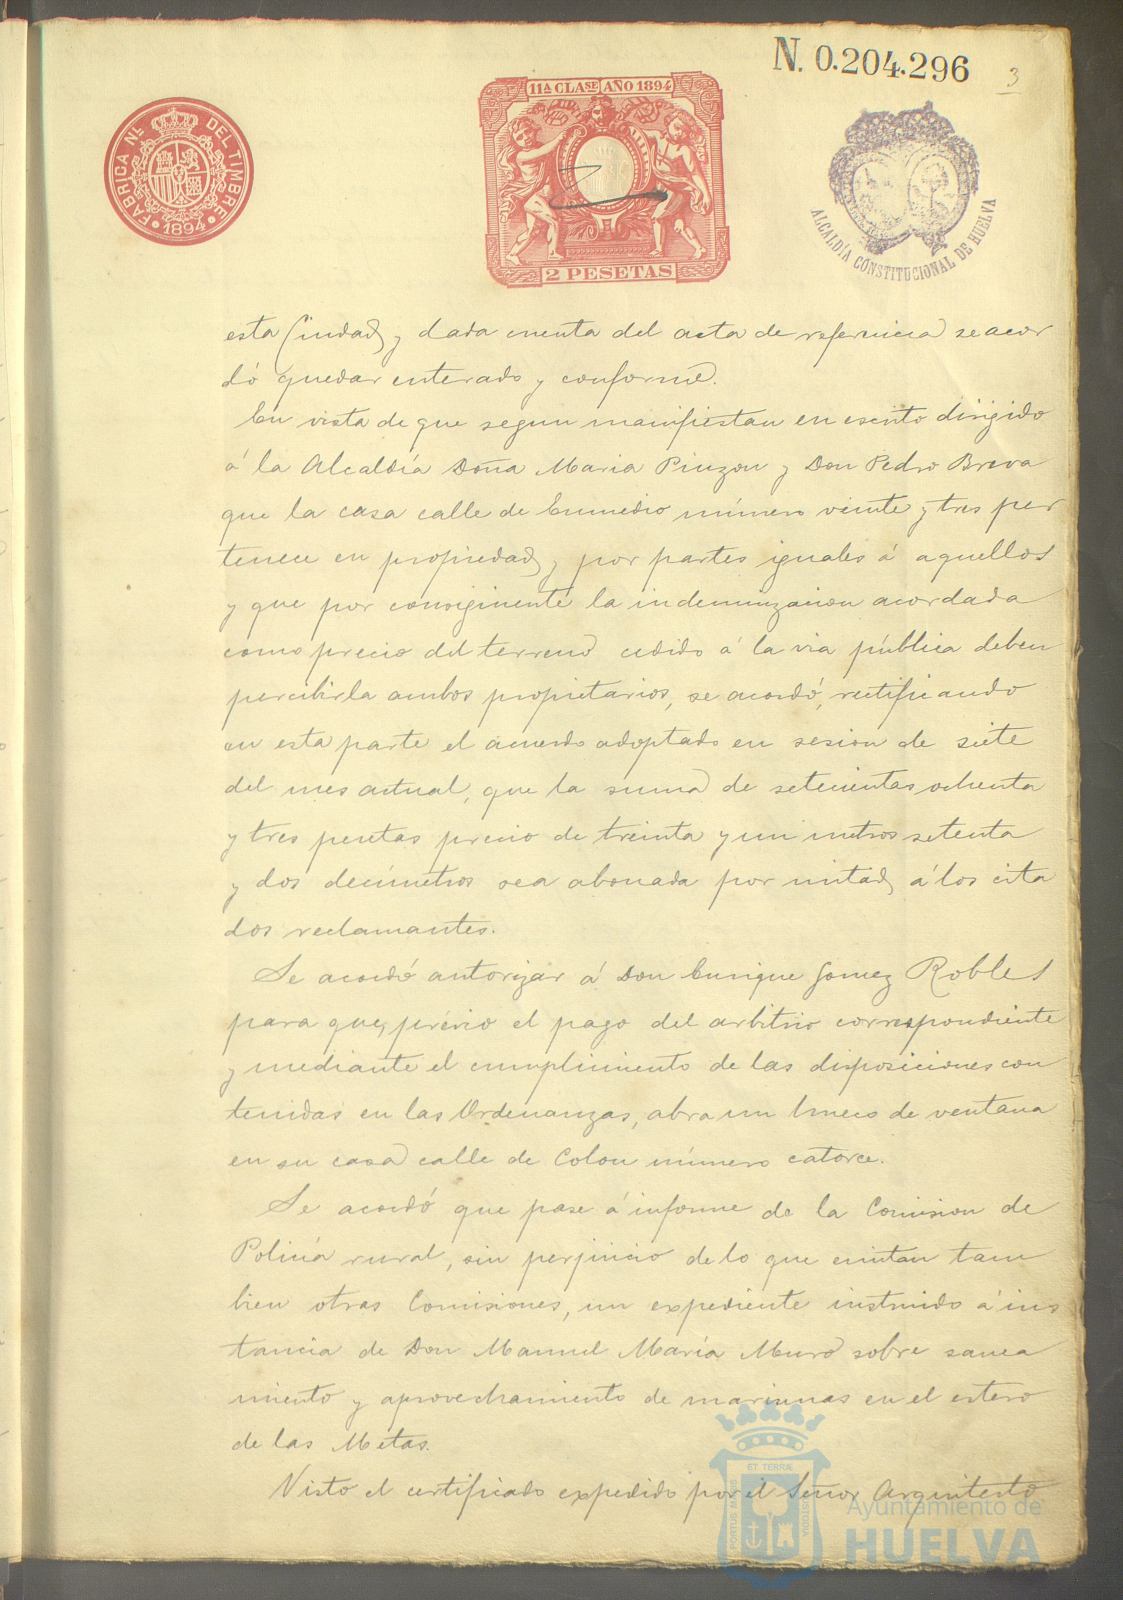 N. 0.204.296
3
FABRICA NL. DEL TIMBRE
1894
11ª CLASE AÑO 1894
2 PESETAS
ALCALDÍA CONSTITUCIONAL DE HUELVA
esta Ciudad y dada cuenta del acta de referencia se acor
dó quedar enterado y conforme.
En vista de que segun manifiestan en escrito dirigido
á la Alcaldía Doña Maria Pinzon y Don Pedro Breva
que la casa calle de Enmedio número veinte y tres per
tenece en propiedad y por partes iguales á aquellos
y que por consiguiente la indemnizacion acordada
como precio del terreno cedido á la via pública deben
percibirla ambos propietarios, se acordó, rectificando
en esta parte el acuerdo adoptado en sesion de siete
del mes actual, que la suma de setecientas ochenta
y tres pesetas precio de treinta y un metros setenta
y dos decímetros sea abonada por mitad á los cita
dos reclamantes.
Se acordó autorizar á Don Enrique Gomez Robles
para que, prévio el pago del arbitrio correspondiente
y mediante el cumplimiento de las disposiciones con
tenidas en las Ordenanzas, abra un hueco de ventana
en su casa calle de Colon número catorce.
Se acordó que pase á informe de la Comision de
Policía rural, sin perjuicio de lo que emitan tam
bien otras Comisiones, un expediente instruido á ins
tancia de Don Manuel María Muro sobre sanea
miento y aprovechamiento de marismas en el estero
de las Metas.
Visto el certificado expedido por el Señor Arquitecto
ET TERRÆ
PORTUS MARIS
CUSTODIA
Ayuntamiento de
HUELVA